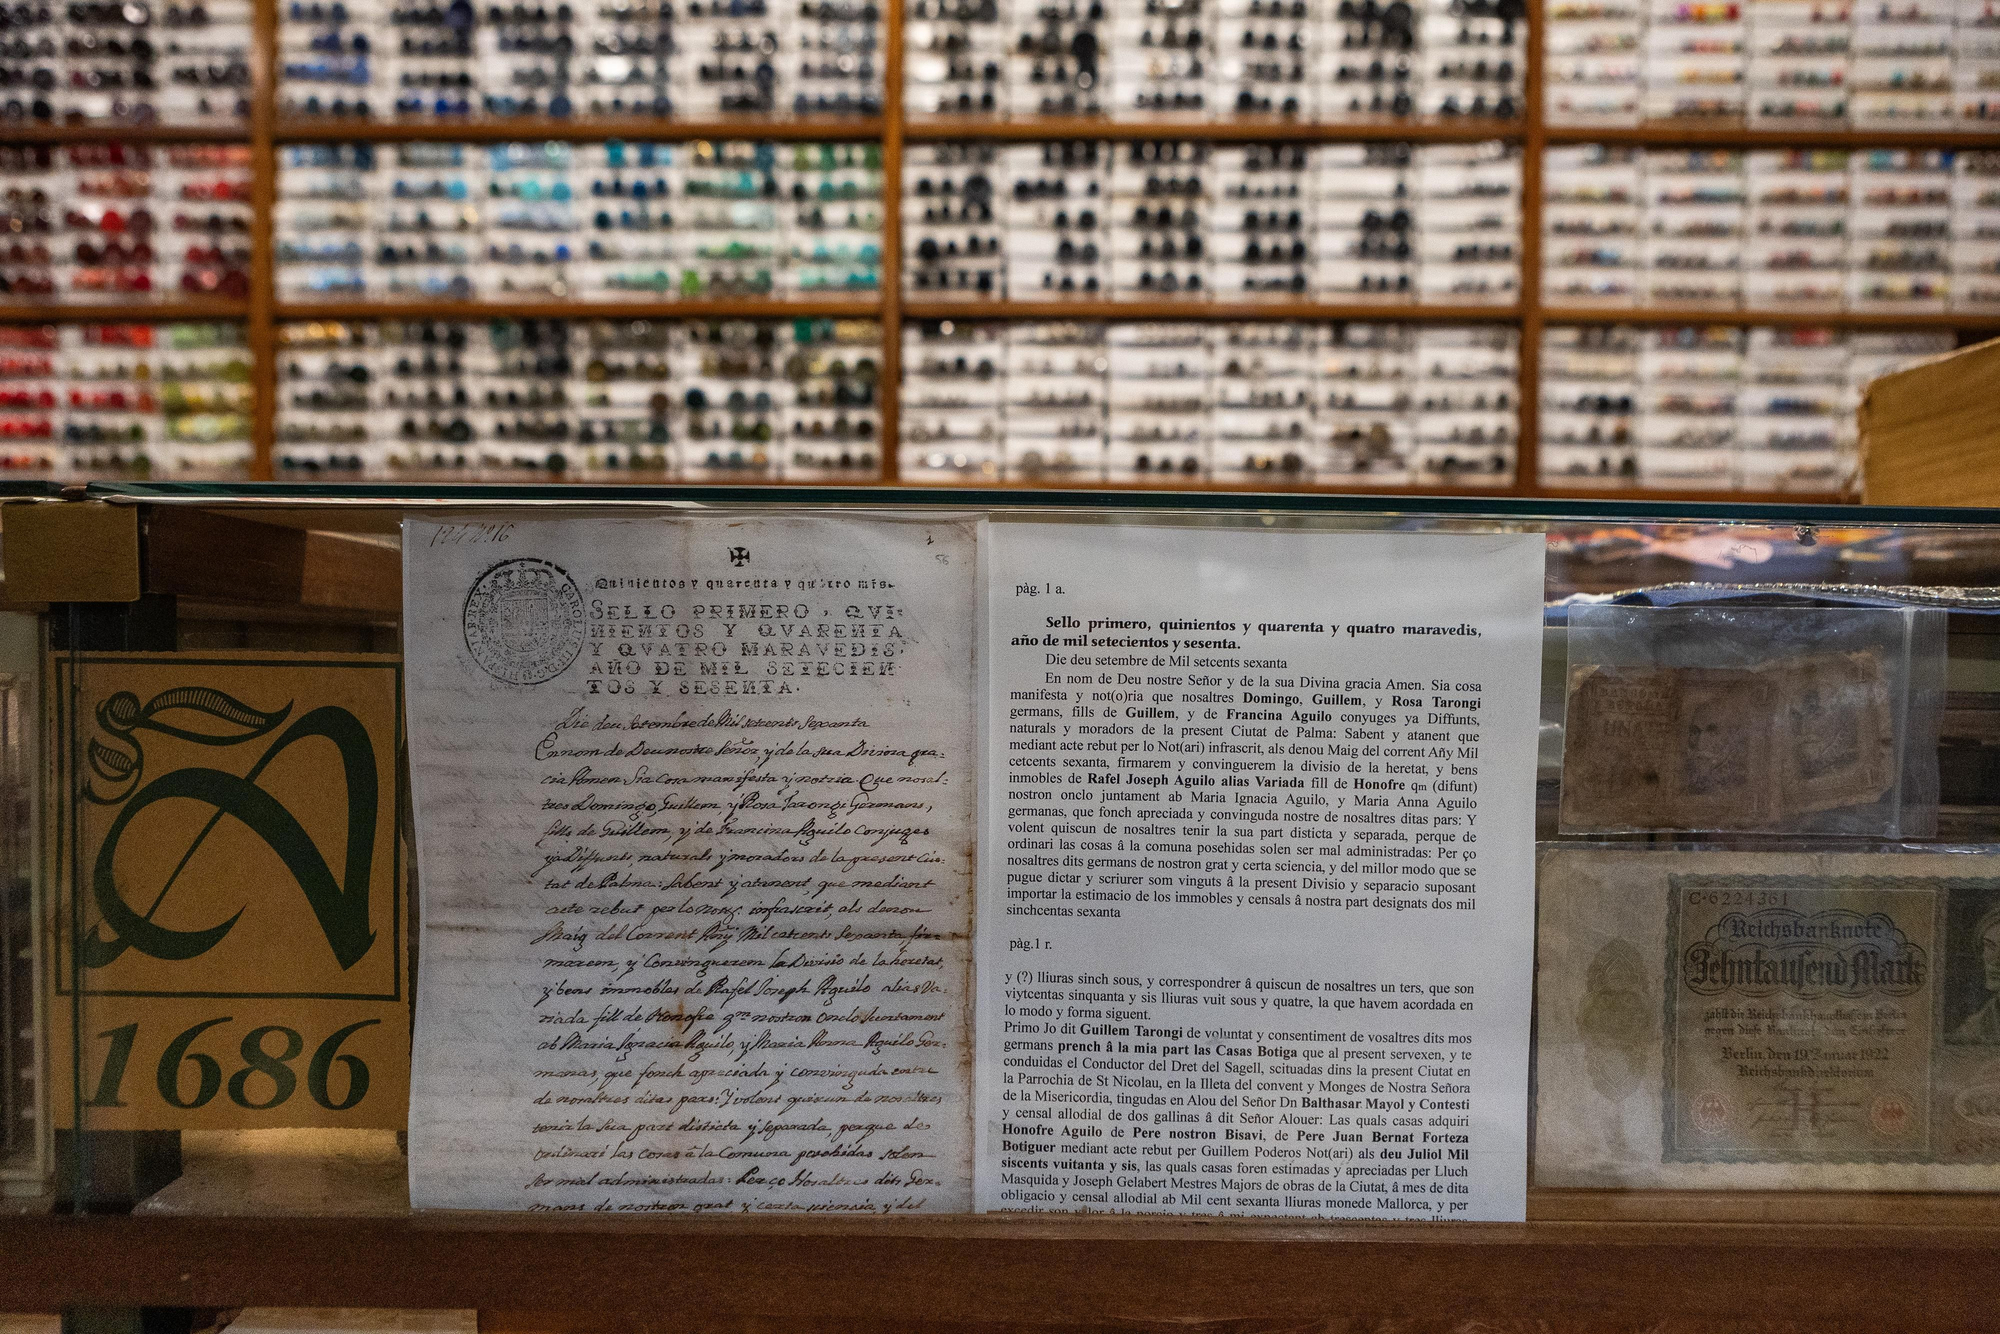 1686
Quinientos y quarenta y quatro mrs.
SELLO PRIMERO, QVI-
NIENTOS Y QVARENTA
Y QVATRO MARAVEDIS.
AÑO DE MIL SETECIEN
TOS Y SESENTA.
Die deu Setembre de Mil setcents Sexanta
En nom de Deu nostre Señor, y de la sua Divina gra-
cia Amen. Sia Cosa manifesta y notoria. Que nosal-
tres Domingo, Guillem, y Rosa Tarongi Germans,
fills de Guillem, y de Francina Aguilo Conjuges
ya Diffunts, naturals y moradors de la present Ciu-
tat de Palma: Sabent y atanent, que mediant
acte rebut per lo Not. infrascrit, als denou
Maig del Corrent Any Mil Catcents Sexanta fir-
marem, y Convinguerem la Divisio de la heretat,
y bens immobles de Rafel Joseph Aguilo alias Va-
riada fill de Honofre qm nostron Onclo juntament
ab Maria Ignacia Aguilo, y Maria Anna Aguilo Ger-
manas, que fonch apreciada y convinguda entre
de nosaltres ditas pars: Y volent quiscun de nosaltres
tenir la sua part disticta y separada, perque de
ordinari las cosas â la Comuna possehidas solen
ser mal administradas: Per ço Nosaltres dits Ger-
mans de nostron grat y certa sciencia, y del
56
pàg. 1 a.
Sello primero, quinientos y quarenta y quatro maravedis,
año de mil setecientos y sesenta.
Die deu setembre de Mil setcents sexanta
En nom de Deu nostre Señor y de la sua Divina gracia Amen. Sia cosa
manifesta y not(o)ria que nosaltres Domingo, Guillem, y Rosa Tarongi
germans, fills de Guillem, y de Francina Aguilo conyuges ya Diffunts,
naturals y moradors de la present Ciutat de Palma: Sabent y atanent que
mediant acte rebut per lo Not(ari) infrascrit, als denou Maig del corrent Añy Mil
cetcents sexanta, firmarem y convinguerem la divisio de la heretat, y bens
inmobles de Rafel Joseph Aguilo alias Variada fill de Honofre qm (difunt)
nostron onclo juntament ab Maria Ignacia Aguilo, y Maria Anna Aguilo
germanas, que fonch apreciada y convinguda nostre de nosaltres ditas pars: Y
volent quiscun de nosaltres tenir la sua part disticta y separada, perque de
ordinari las cosas â la comuna posehidas solen ser mal administradas: Per ço
nosaltres dits germans de nostron grat y certa sciencia, y del millor modo que se
pugue dictar y scriurer som vinguts â la present Divisio y separacio suposant
importar la estimacio de los immobles y censals â nostra part designats dos mil
sinchcentas sexanta
pàg.1 r.
y (?) lliuras sinch sous, y correspondrer â quiscun de nosaltres un ters, que son
viytcentas sinquanta y sis lliuras vuit sous y quatre, la que havem acordada en
lo modo y forma siguent.
Primo Jo dit Guillem Tarongi de voluntat y consentiment de vosaltres dits mos
germans prench â la mia part las Casas Botiga que al present servexen, y te
conduidas el Conductor del Dret del Sagell, scituadas dins la present Ciutat en
la Parrochia de St Nicolau, en la Illeta del convent y Monges de Nostra Señora
de la Misericordia, tingudas en Alou del Señor Dn Balthasar Mayol y Contesti
y censal allodial de dos gallinas â dit Señor Alouer: Las quals casas adquiri
Honofre Aguilo de Pere nostron Bisavi, de Pere Juan Bernat Forteza
Botiguer mediant acte rebut per Guillem Poderos Not(ari) als deu Juliol Mil
siscents vuitanta y sis, las quals casas foren estimadas y apreciadas per Lluch
Masquida y Joseph Gelabert Mestres Majors de obras de la Ciutat, â mes de dita
obligacio y censal allodial ab Mil cent sexanta lliuras monede Mallorca, y per
C·6224361
Reichsbanknote
Zehntausend Mark
zahlt die Reichsbankhauptkasse in Berlin
gegen diese Banknote dem Einlieferer
Berlin, den 19. Januar 1922
Reichsbankdirektorium